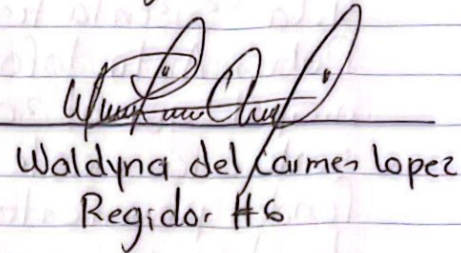 Waldyna del Carmen lopez
Regidor #6